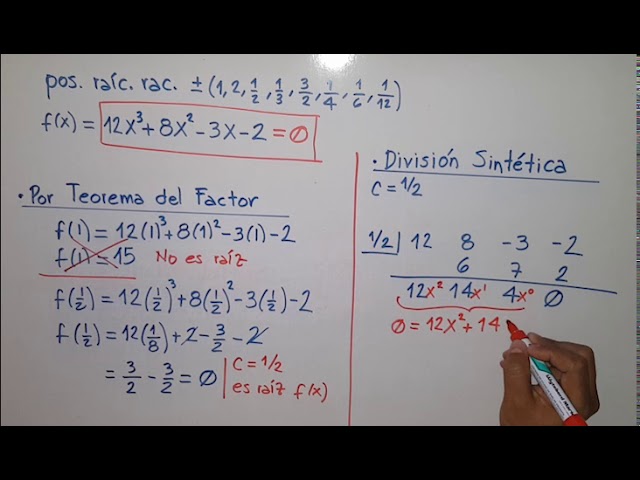 pos. raíc. rac. ± (1, 2, 1/2, 1/3, 3/2, 1/4, 1/6, 1/12)
f(x) = 12x³+8x²-3x-2=0
• Por Teorema del Factor
f(1) = 12(1)³+8(1)²-3(1)-2
f(1) = 15 No es raíz
f(1/2) = 12(1/2)³+8(1/2)²-3(1/2)-2
f(1/2) = 12(1/8)+2-3/2-2
= 3/2 - 3/2 = 0
C = 1/2
es raíz f(x)
• División Sintética
C = 1/2
1/2 | 12 8 -3 -2
6 7 2
12x² 14x¹ 4x⁰ 0
0 = 12x²+14